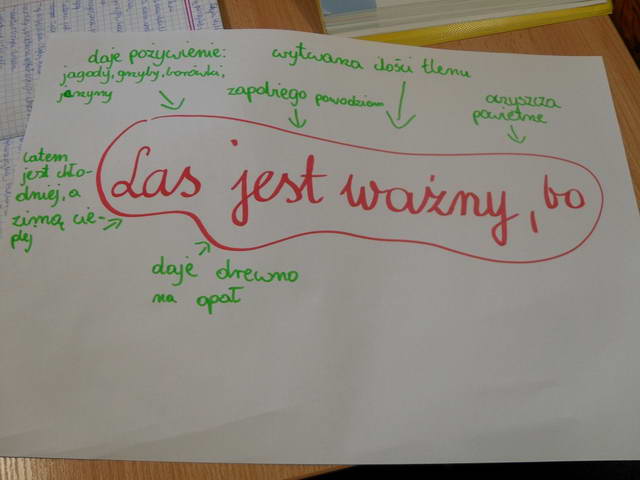 daje pożywienie:
jagody, grzyby, borówki,
jeżyny
wytwarza dości tlenu
zapobiega powodziom
oczyszcza
powietrze
latem
jest chło-
dniej, a
zimą cie-
plej
Las jest ważny, bo
daje drewno
na opał